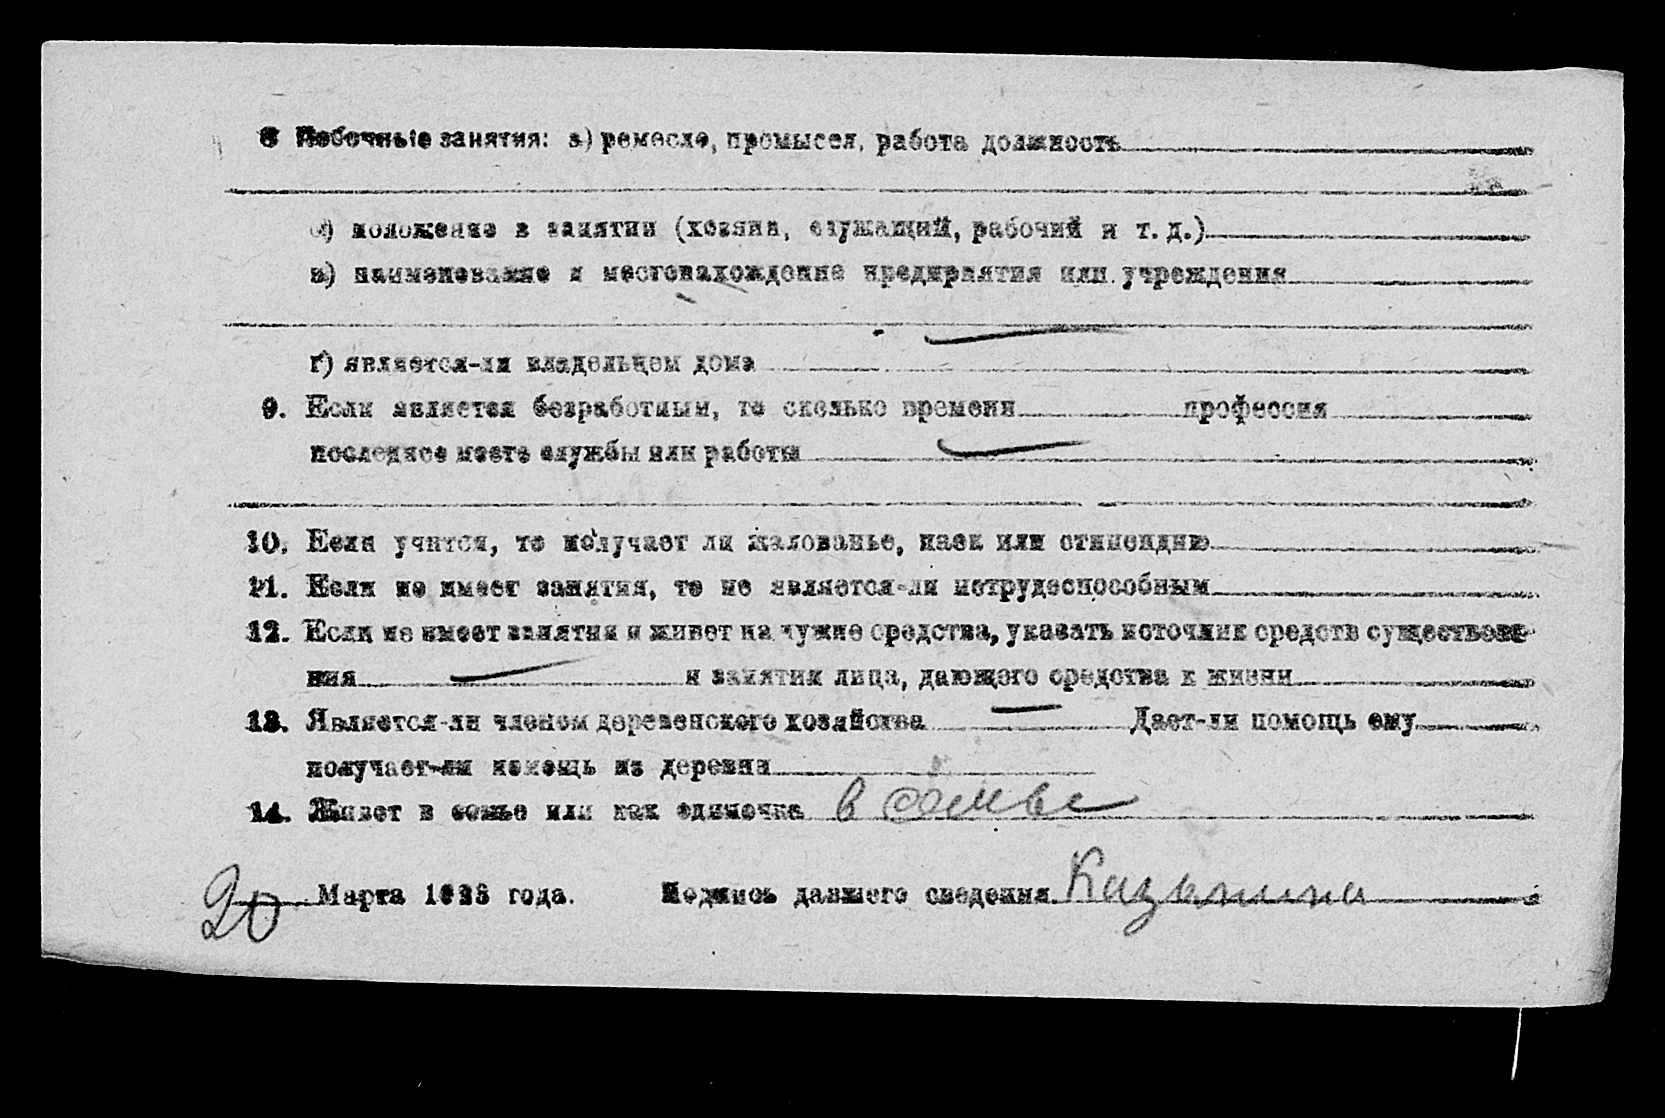 8 Побочные занятия: а) ремесло, промысел, работа должность
б) положение в занятии (хозяин, служащий, рабочий и т. д.)
в) наименование и местонахождение предприятия или учреждения
г) является-ли владельцем дома
9. Если является безработным, то сколько времени профессия
последнее место службы или работы
10. Если учится, то получает ли жалованье, паек или стипендию
11. Если не имеет занятия, то не является-ли нетрудоспособным
12. Если не имеет занятия и живет на чужие средства, указать источник средств существова-
ния и занятия лица, дающего средства к жизни
13. Является-ли членом деревенского хозяйства — Дает-ли помощь ему
получает-ли помощь из деревни
14. Живет в семье или как одиночка в семье
20 Марта 1923 года. Подпись давшего сведения